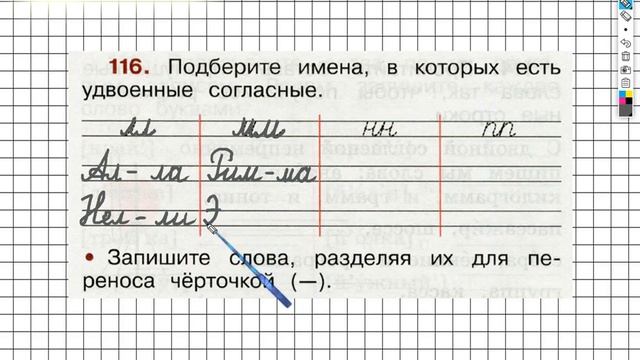 116. Подберите имена, в которых есть
удвоенные согласные.
лл мм нн пп
Ал-ла Рим-ма
Нел-ли Э
• Запишите слова, разделяя их для пе-
реноса чёрточкой (—).